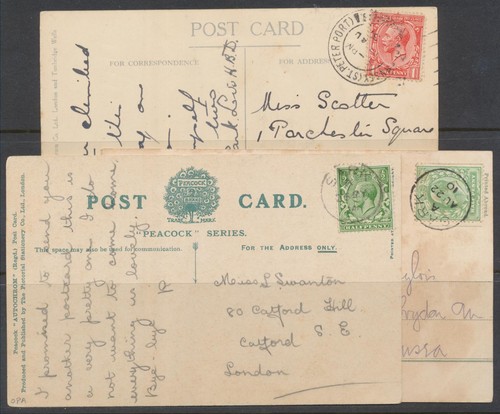 POST CARD
FOR CORRESPONDENCE
FOR ADDRESS
climbed
this
on
myself
two
Miss Scotter
1, Porchester Square
ST PETER PORT
POST CARD.
PEACOCK
TRADE MARK
"PEACOCK" SERIES.
This space may also be used for communication.
FOR THE ADDRESS ONLY.
HALFPENNY
Peacock "AUTOCHROM" (Regd.) Post Card.
Produced and Published by The Pictorial Stationery Co., Ltd., London.
I promised to send you
another postcard this is
a very pretty one I do
not want to come home,
everything is lovely.
Bye-bye
Miss L Swanton
80 Catford Hill
Catford S.E
London
OPA
SARK
AU 22
10
Croydon
Printed Abroad.